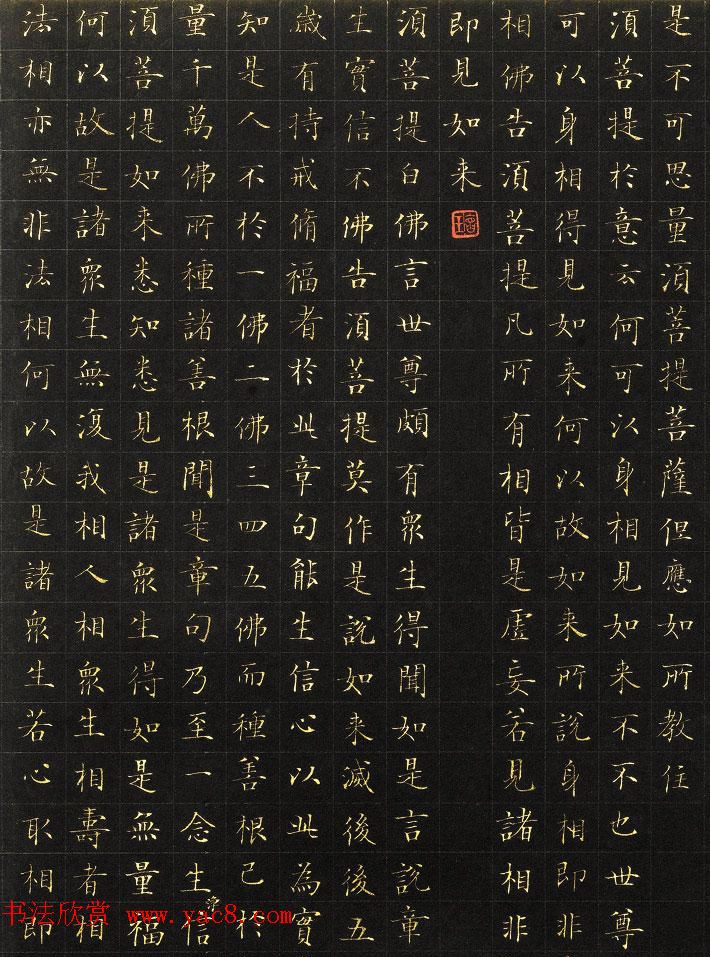 是不可思量須菩提菩薩但應如所教住
須菩提於意云何可以身相見如来不不也世尊
可以身相得見如来何以故如来所說身相即非
相佛告須菩提凡所有相皆是虛妄若見諸相非
即見如来
須菩提白佛言世尊頗有眾生得聞如是言說章
生實信不佛告須菩提莫作是說如来滅後後五
歲有持戒脩福者於此章句能生信心以此為實
知是人不於一佛二佛三四五佛而種善根已於
量千萬佛所種諸善根聞是章句乃至一念生淨信
須菩提如来悉知悉見是諸眾生得如是無量福
何以故是諸眾生無復我相人相眾生相壽者相
法相亦無非法相何以故是諸眾生若心取相即
书法欣赏 www.yac8.com